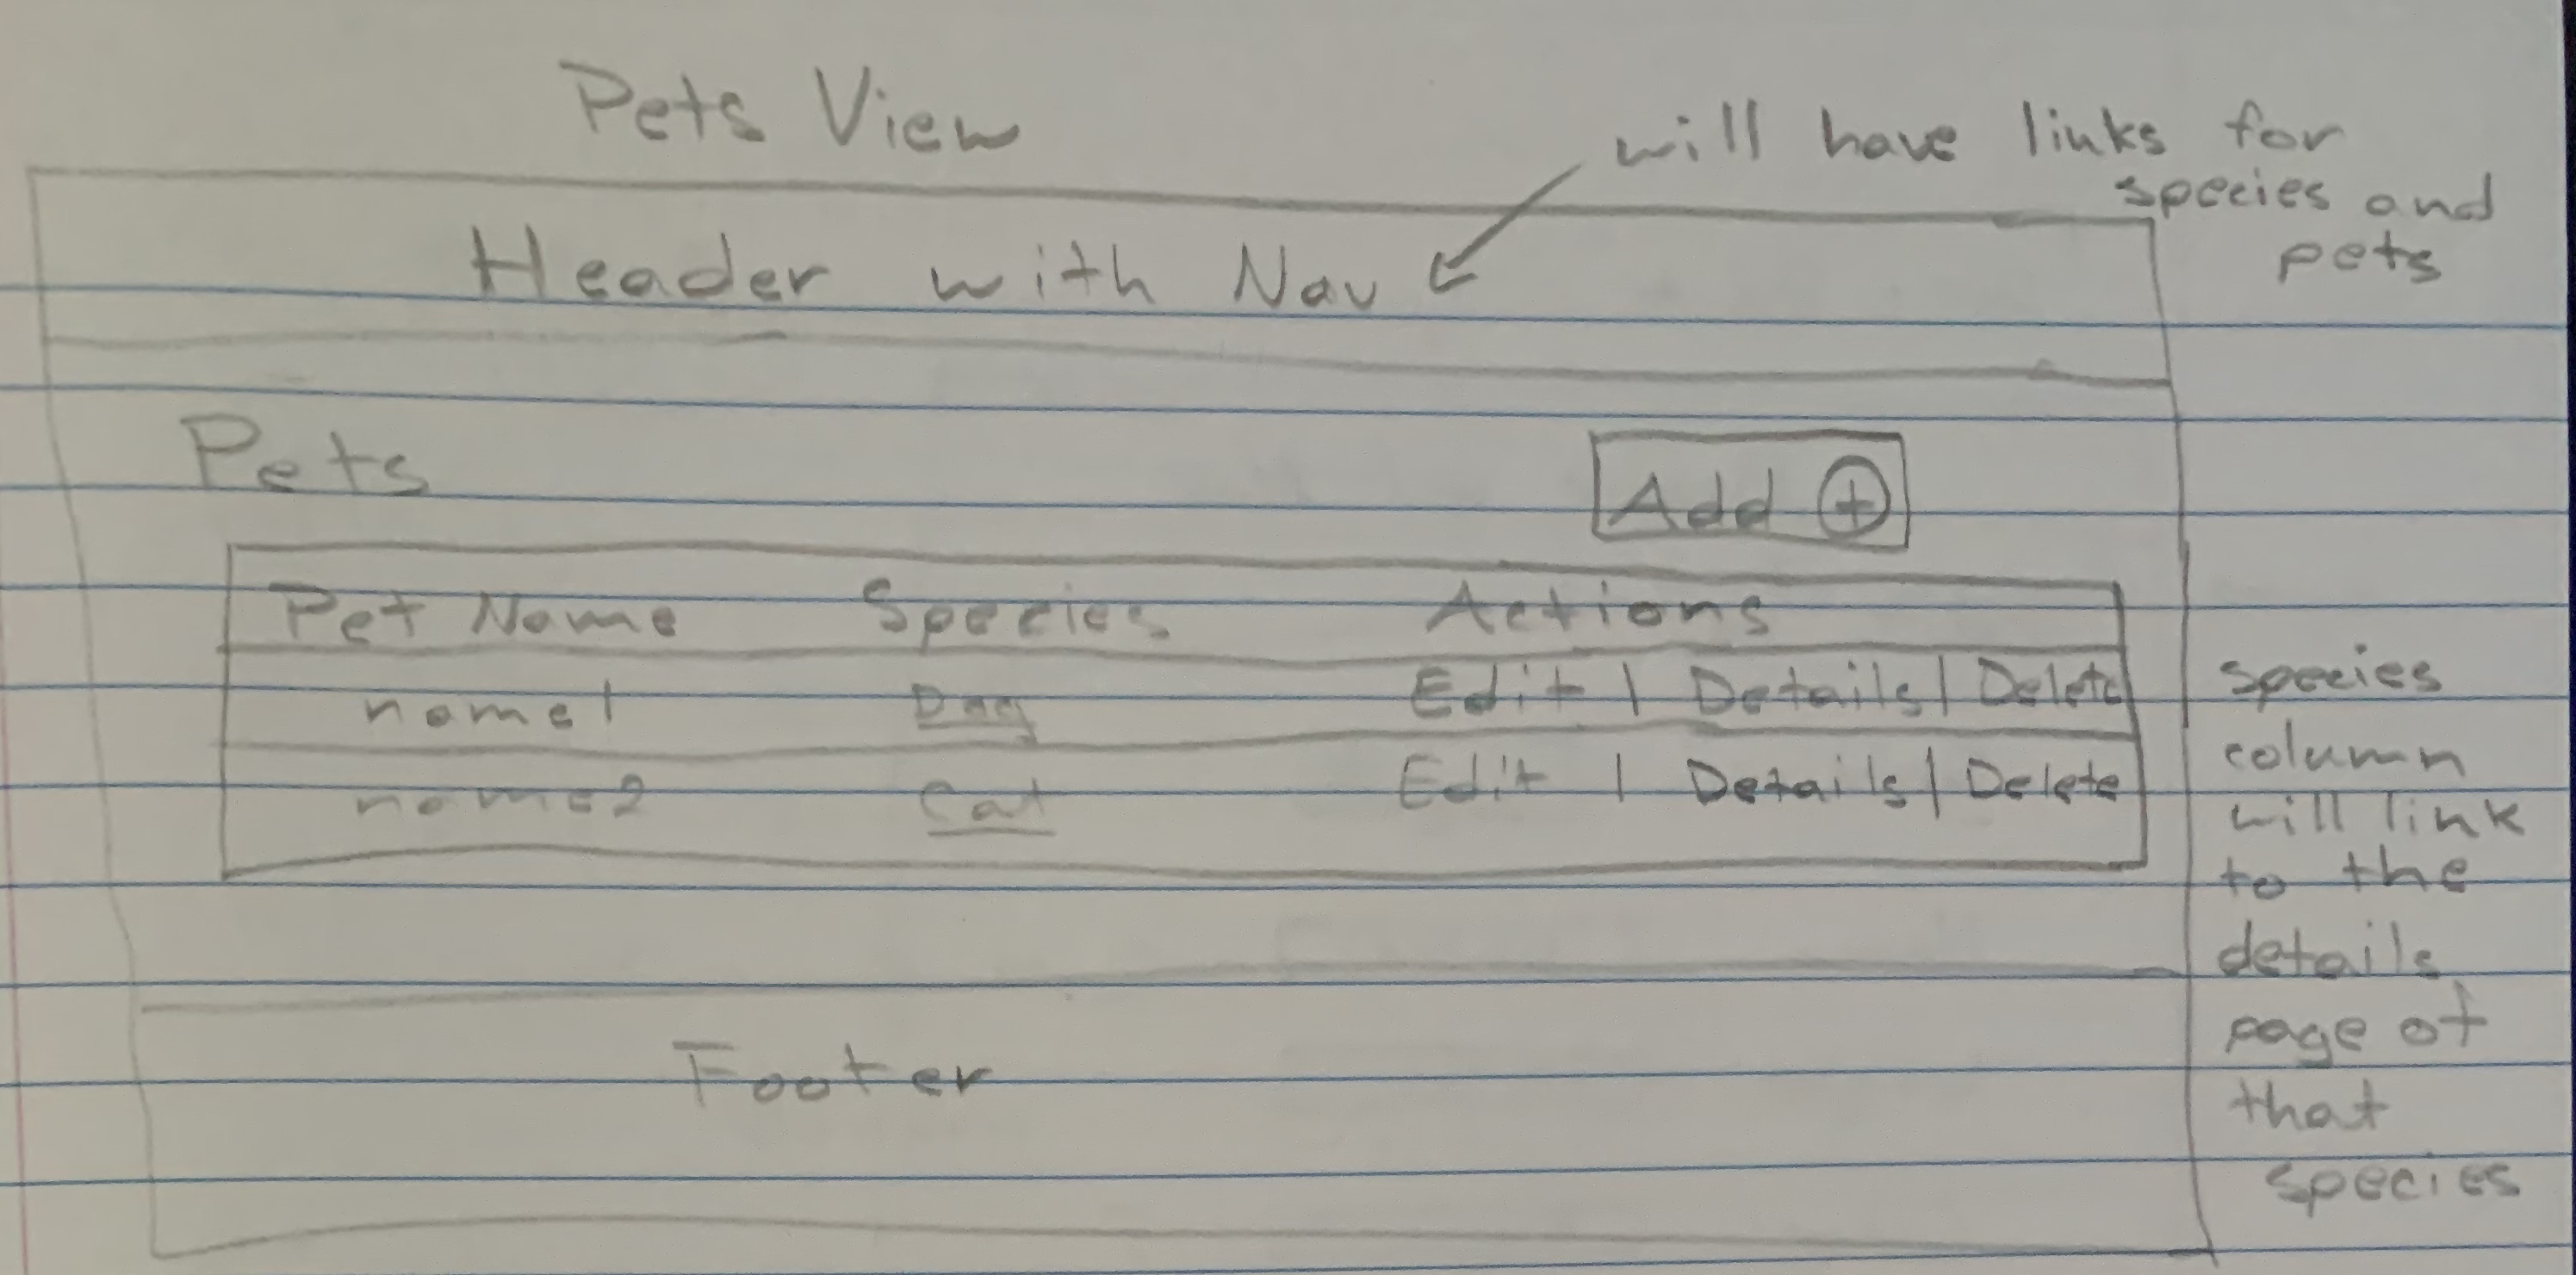 Pets View
will have links for
species and
pets
Header with Nav
Pets
Add +
Pet Name Species Actions
name1 Dog Edit | Details | Delete
name2 Cat Edit | Details | Delete
species
column
will link
to the
details
page of
that
species
Footer